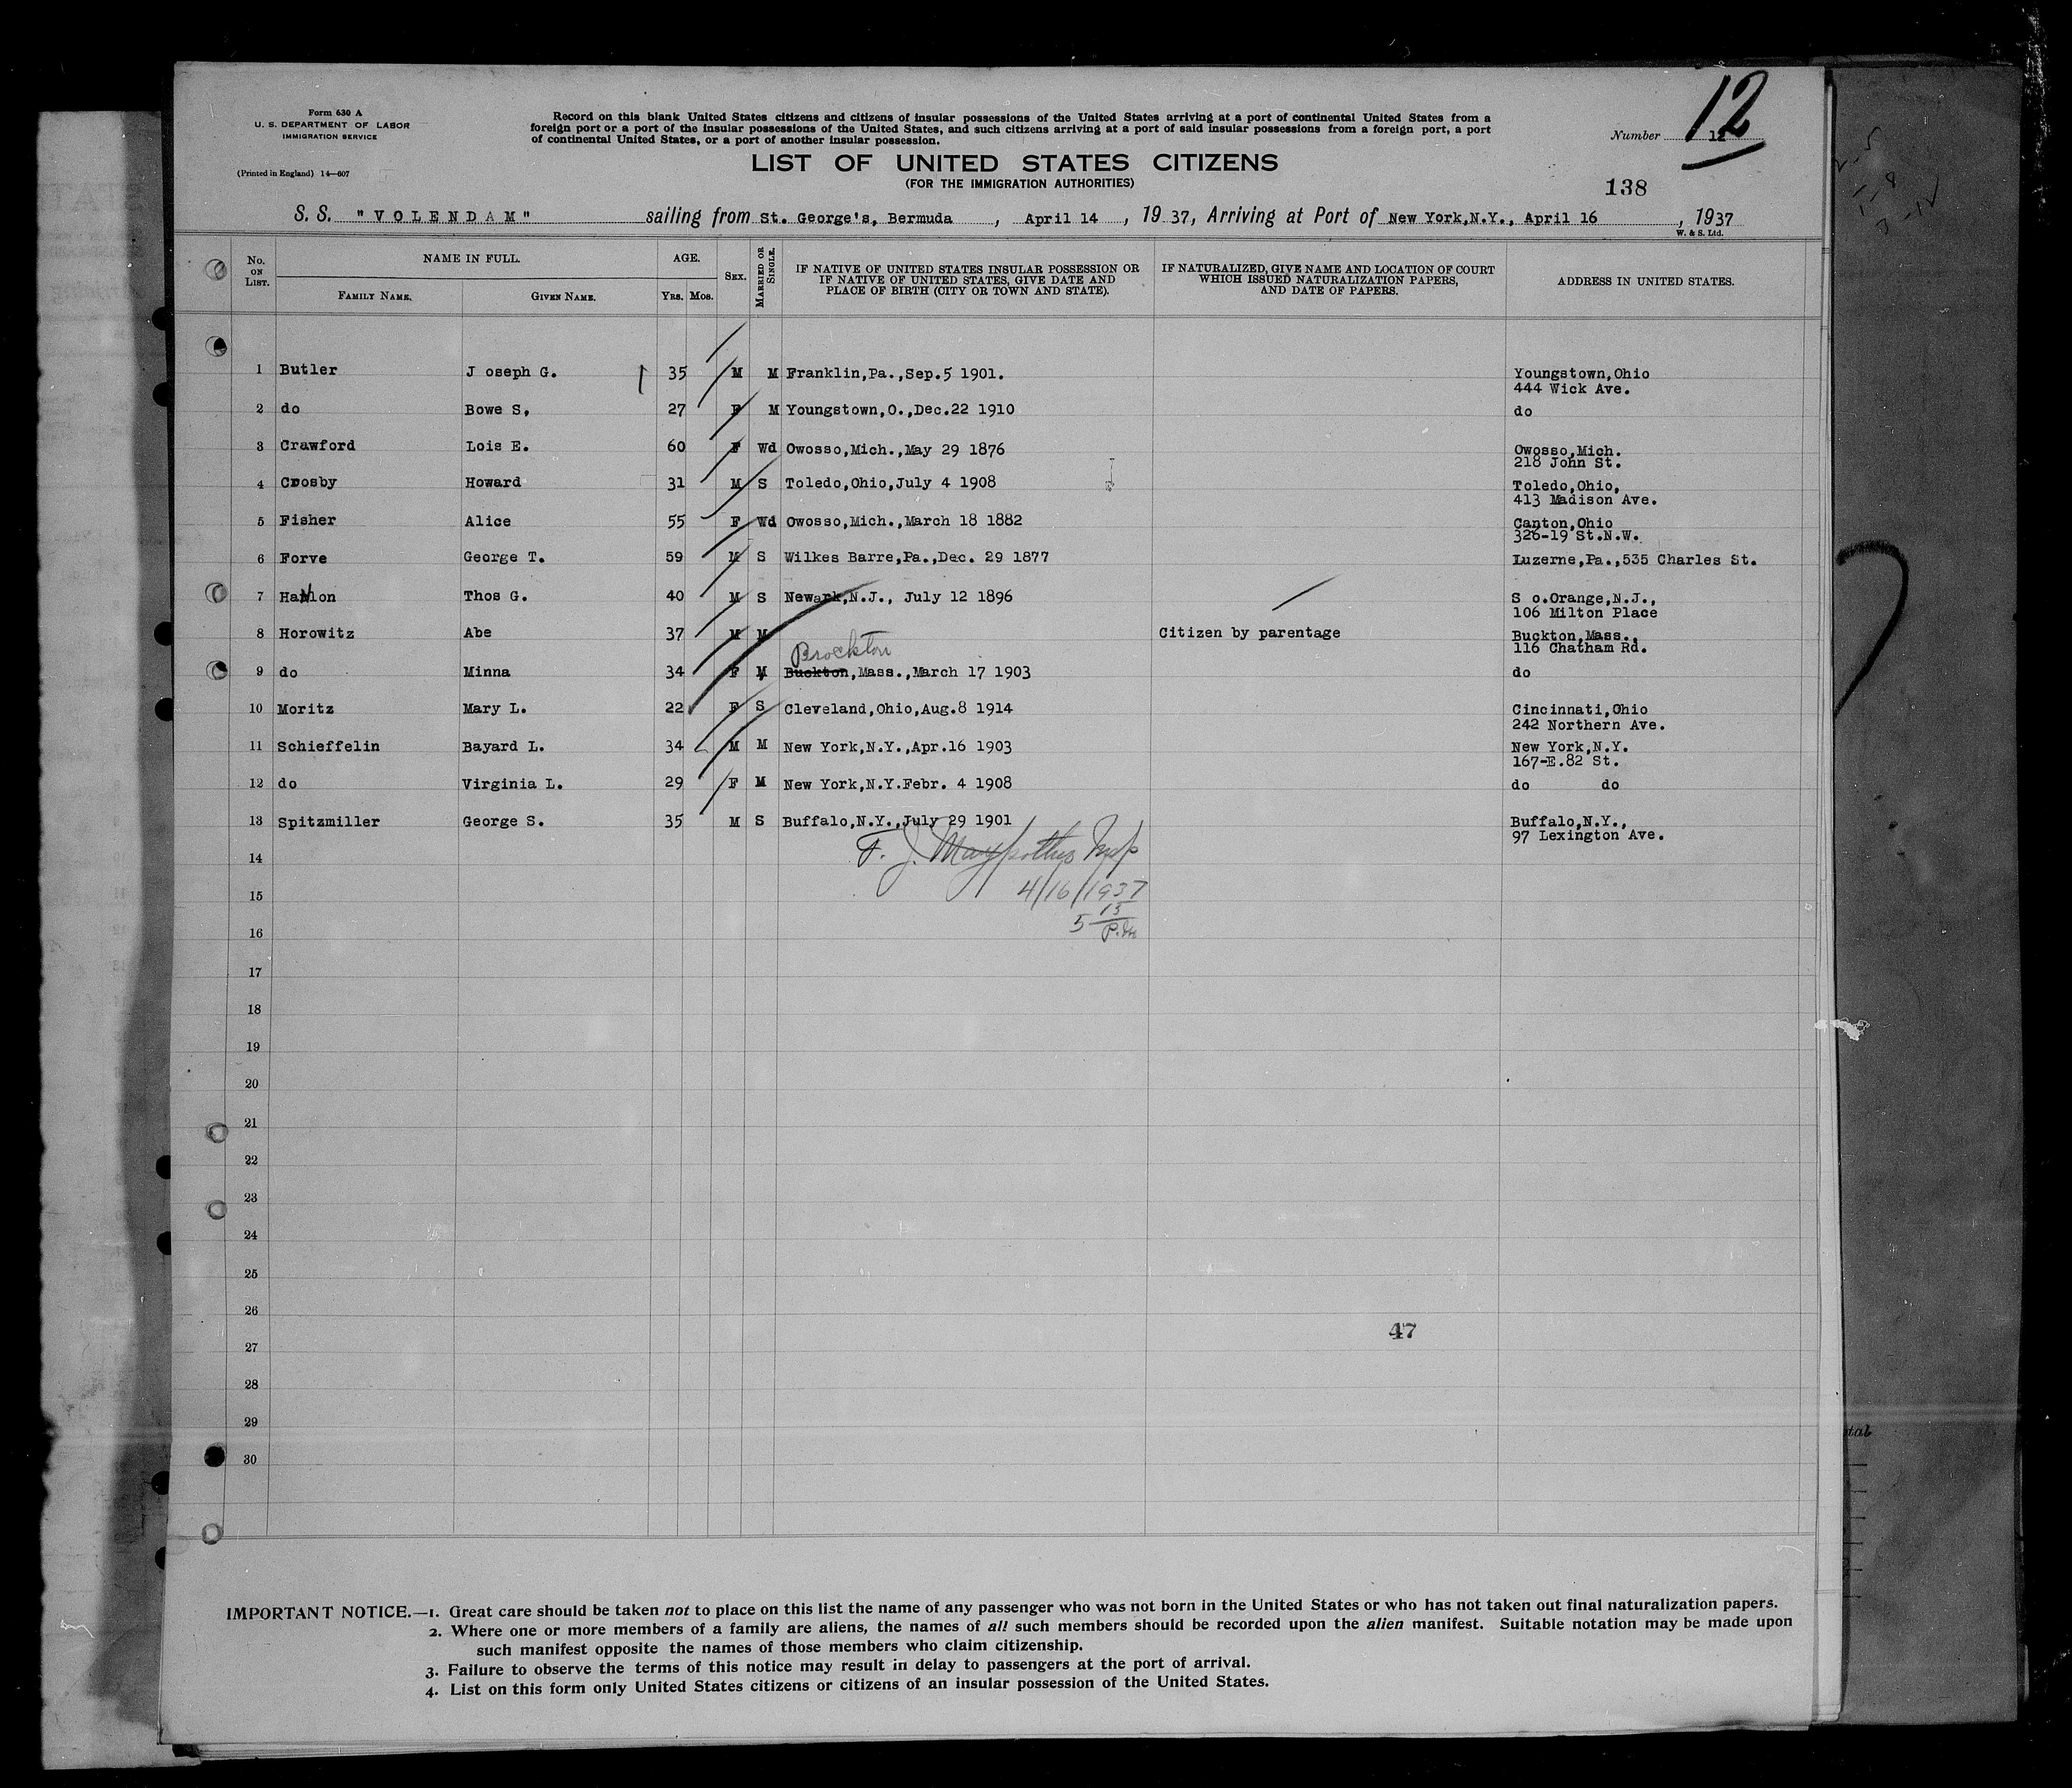 Form 630 A
U. S. DEPARTMENT OF LABOR
IMMIGRATION SERVICE
(Printed in England) 14—607
Record on this blank United States citizens and citizens of insular possessions of the United States arriving at a port of continental United States from a
foreign port or a port of the insular possessions of the United States, and such citizens arriving at a port of said insular possessions from a foreign port, a port
of continental United States, or a port of another insular possession.
LIST OF UNITED STATES CITIZENS
(FOR THE IMMIGRATION AUTHORITIES)
Number 12
12
138
S. S. "VOLENDAM" sailing from St. George's, Bermuda, April 14, 1937, Arriving at Port of New York,N.Y., April 16, 1937
W. & S. Ltd.
No. ON LIST.
NAME IN FULL.
FAMILY NAME.
GIVEN NAME.
AGE.
YRS. MOS.
SEX.
MARRIED OR SINGLE.
IF NATIVE OF UNITED STATES INSULAR POSSESSION OR
IF NATIVE OF UNITED STATES, GIVE DATE AND
PLACE OF BIRTH (CITY OR TOWN AND STATE).
IF NATURALIZED, GIVE NAME AND LOCATION OF COURT
WHICH ISSUED NATURALIZATION PAPERS,
AND DATE OF PAPERS.
ADDRESS IN UNITED STATES.
1 Butler J oseph G. 35 M M Franklin,Pa.,Sep.5 1901. Youngstown,Ohio
444 Wick Ave.
2 do Bowe S, 27 F M Youngstown,O.,Dec.22 1910 do
3 Crawford Lois E. 60 F Wd Owosso,Mich.,May 29 1876 Owosso,Mich.
218 John St.
4 Crosby Howard 31 M S Toledo,Ohio,July 4 1908 Toledo,Ohio,
413 Madison Ave.
5 Fisher Alice 55 F Wd Owosso,Mich.,March 18 1882 Canton,Ohio
326-19 St.N.W.
6 Forve George T. 59 M S Wilkes Barre,Pa.,Dec. 29 1877 Luzerne,Pa.,535 Charles St.
7 Hanlon Thos G. 40 M S Newark,N.J., July 12 1896 S o.Orange,N.J.,
106 Milton Place
8 Horowitz Abe 37 M M Citizen by parentage Buckton,Mass.,
116 Chatham Rd.
Brockton
9 do Minna 34 F M Buckton,Mass.,March 17 1903 do
10 Moritz Mary L. 22 F S Cleveland,Ohio,Aug.8 1914 Cincinnati,Ohio
242 Northern Ave.
11 Schieffelin Bayard L. 34 M M New York,N.Y.,Apr.16 1903 New York,N.Y.
167-E.82 St.
12 do Virginia L. 29 F M New York,N.Y.Febr. 4 1908 do do
13 Spitzmiller George S. 35 M S Buffalo,N.Y.,July 29 1901 Buffalo,N.Y.,
97 Lexington Ave.
14
F. J.
15
4/16/1937
16
5 15 P.M.
17
18
19
20
21
22
23
24
25
26
47
27
28
29
30
IMPORTANT NOTICE.—1. Great care should be taken not to place on this list the name of any passenger who was not born in the United States or who has not taken out final naturalization papers.
2. Where one or more members of a family are aliens, the names of all such members should be recorded upon the alien manifest. Suitable notation may be made upon
such manifest opposite the names of those members who claim citizenship.
3. Failure to observe the terms of this notice may result in delay to passengers at the port of arrival.
4. List on this form only United States citizens or citizens of an insular possession of the United States.